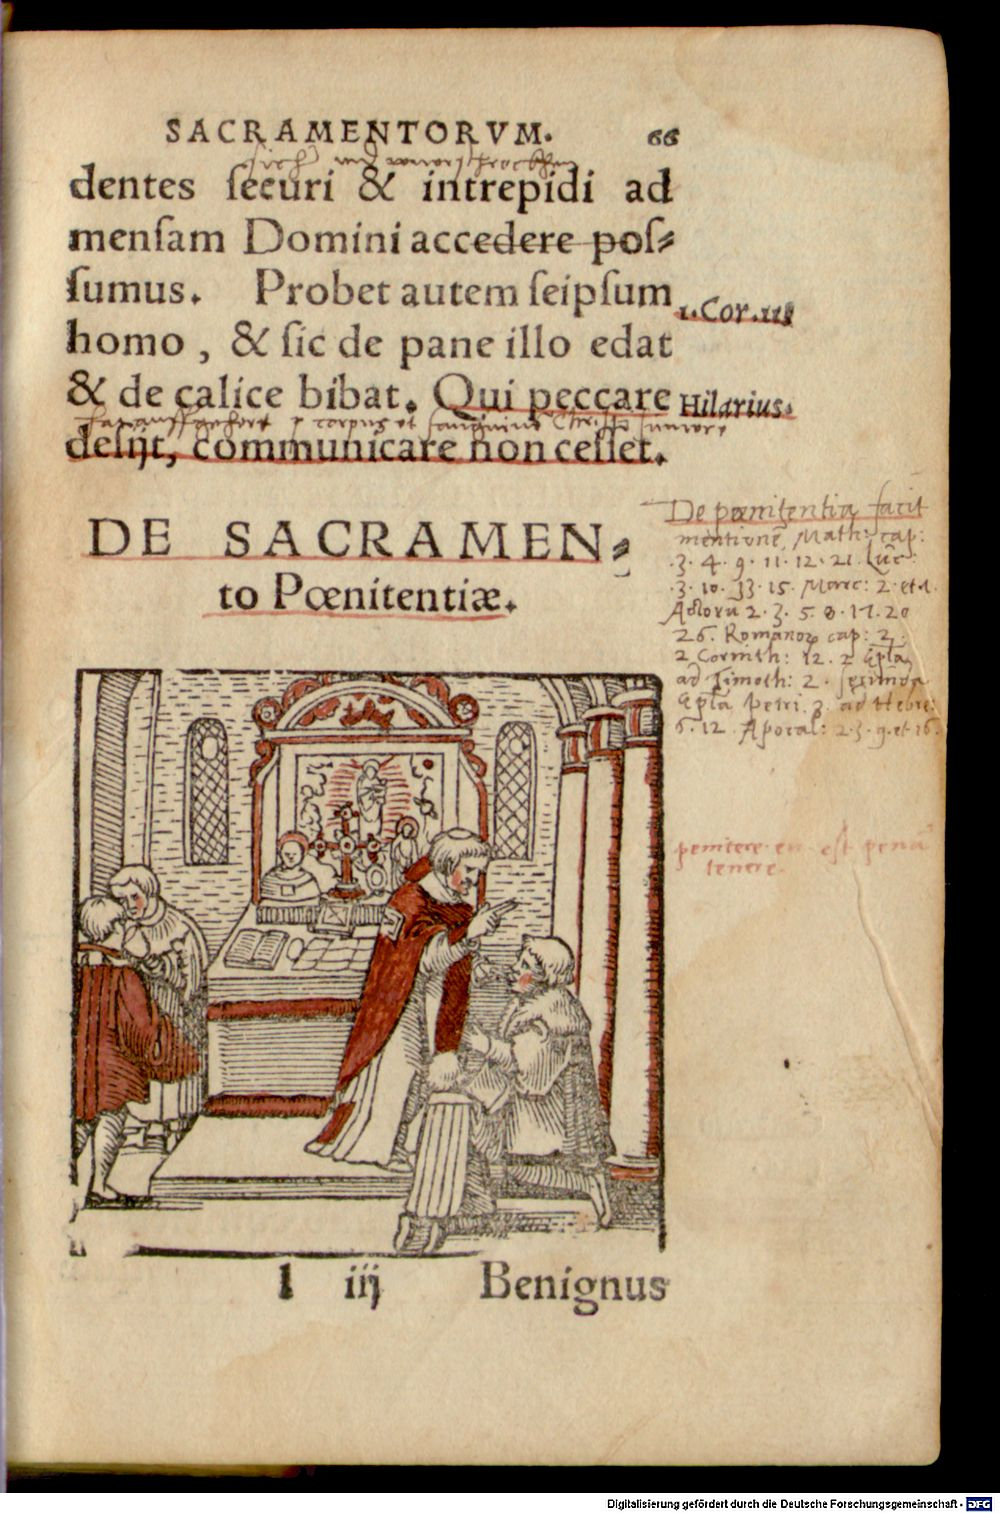 SACRAMENTORVM. 66
dentes securi & intrepidi ad
mensam Domini accedere pos⸗
sumus. Probet autem seipsum
1. Cor. 11
homo, & sic de pane illo edat
& de calice bibat. Qui peccare
Hilarius.
corpus et sanguinem Christi sumere
desijt, communicare non cesset.
DE SACRAMEN⸗
to Pœnitentiæ.
De pœnitentia facit
mentionē Math: cap:
3. 4. 9. 11. 12. 21. Luc:
3. 10. 13. 15. Marc: 2. et 1.
Actorū 2. 3. 5. 8. 17. 20
26. Romanor cap: 2.
2 Corinth: 12. 2 Epla
ad Timoth: 2. secunda
Epla Petri 3. ad Hebre:
6. 12. Apocal: 2. 3. 9. et 16.
penitere est pena
tenere.
l iij Benignus
Digitalisierung gefördert durch die Deutsche Forschungsgemeinschaft - DFG